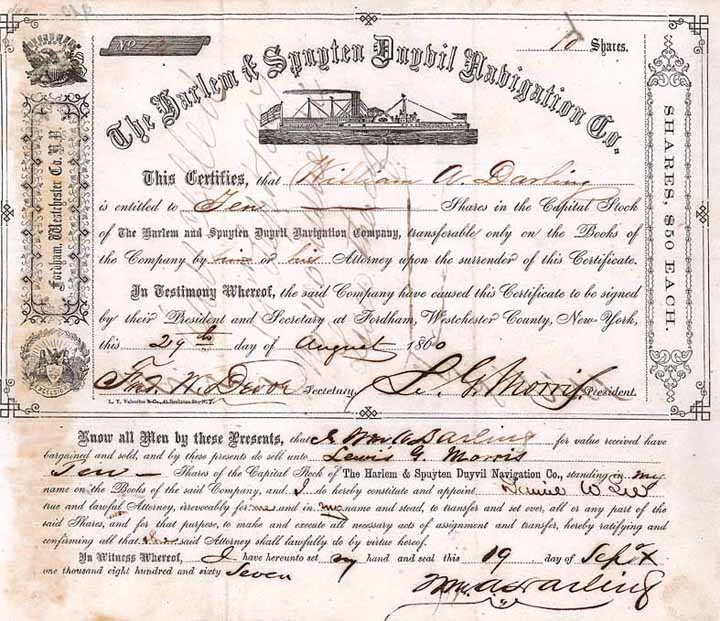 No
10 Shares.
The Harlem & Spuyten Duyvil Navigation Co.
Fordham, Westchester Co. N.Y.
SHARES, $50 EACH.
EXCELSIOR
This Certifies, that William A. Darling
is entitled to Ten Shares in the Capital Stock
of The Harlem and Spuyten Duyvil Navigation Company, transferable only on the Books of
the Company by him or his Attorney upon the surrender of this Certificate.
In Testimony Whereof, the said Company have caused this Certificate to be signed
by their President and Secretary at Fordham, Westchester County, New-York,
this 29th day of August 1860
Fred W. Devoe Secretary. L. G. Morris. President.
Know all Men by these Presents, that I Wm A Darling for value received have
bargained and sold, and by these presents do sell unto Lewis G. Morris
Ten Shares of the Capital Stock of The Harlem & Spuyten Duyvil Navigation Co., standing in my
name on the Books of the said Company, and I do hereby constitute and appoint Daniel W
true and lawful Attorney, irrevocably for me and in my name and stead, to transfer and set over, all or any part of the
said Shares, and for that purpose, to make and execute all necessary acts of assignment and transfer, hereby ratifying and
confirming all that said Attorney shall lawfully do by virtue hereof.
In Witness Whereof, I have hereunto set my hand and seal this 19 day of Sept
one thousand eight hundred and sixty Seven
Wm. A. Darling